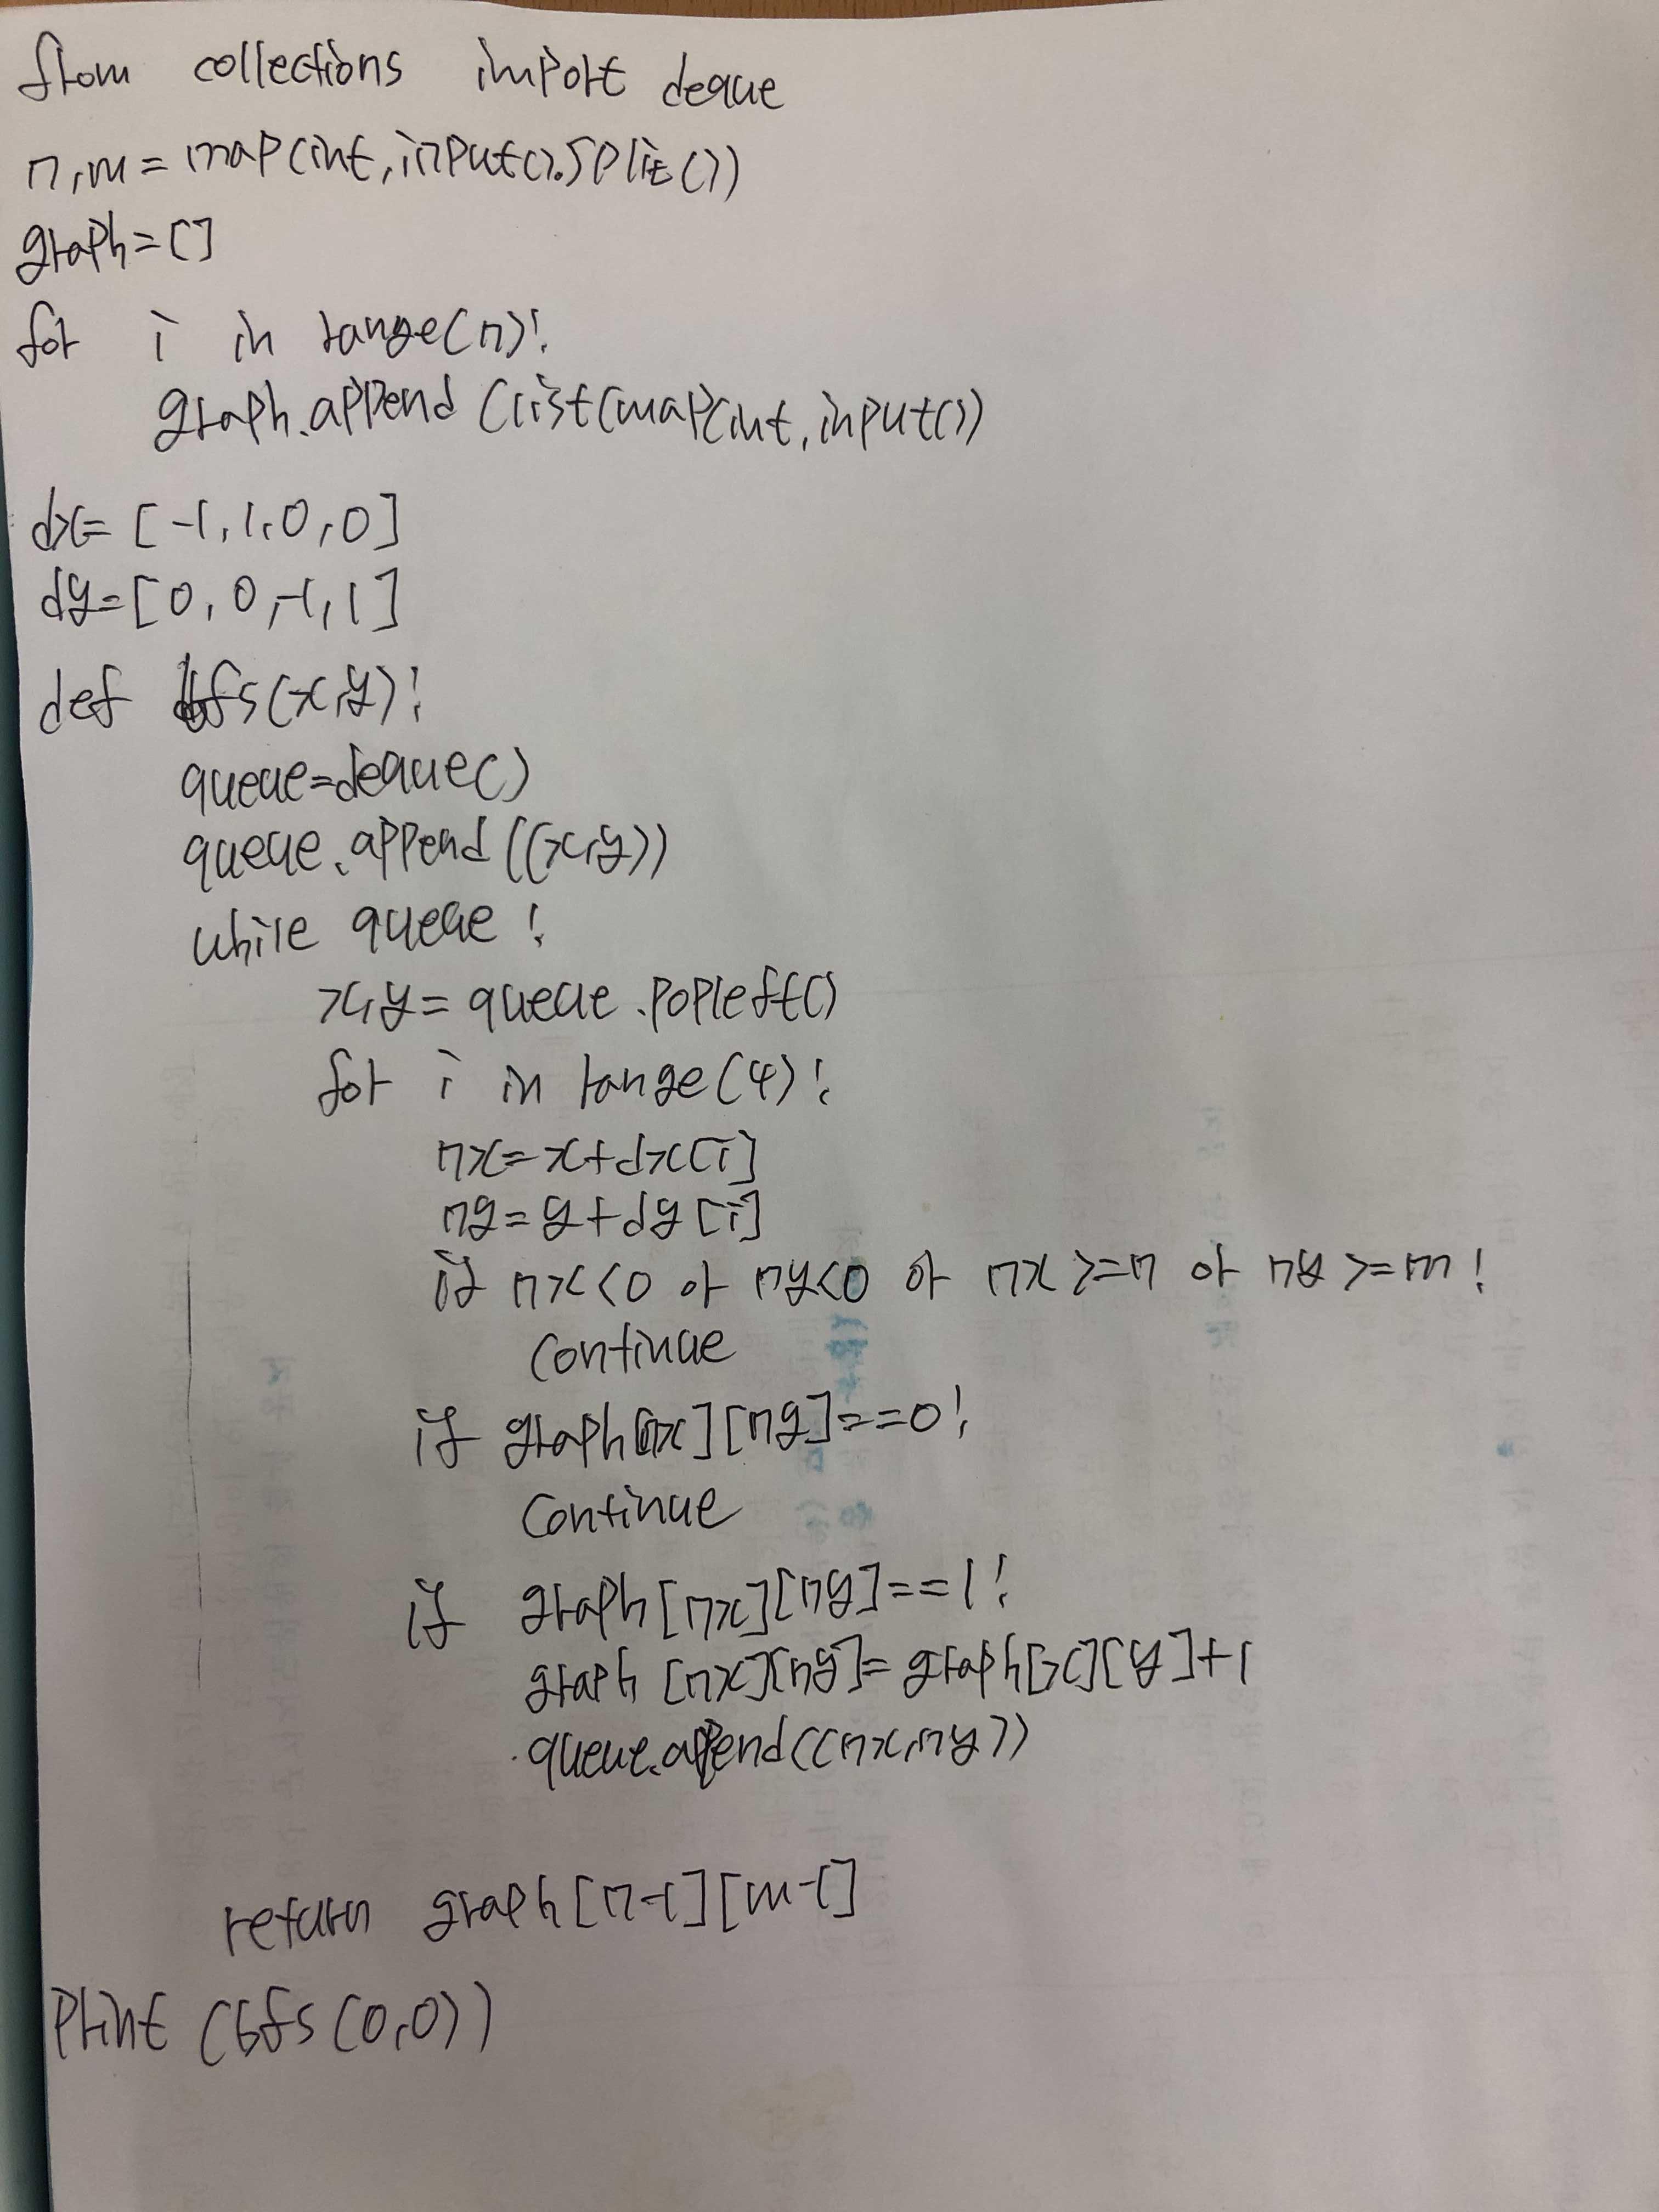 from collections import deque
n,m=map(int,input().split())
graph=[]
for i in range(n):
graph.append(list(map(int,input())
dx=[-1,1,0,0]
dy=[0,0,-1,1]
def bfs(x,y):
queue=deque()
queue.append((x,y))
while queue:
x,y=queue.popleft()
for i in range(4):
nx=x+dx[i]
ny=y+dy[i]
if nx<0 or ny<0 or nx>=n or ny>=m:
continue
if graph[nx][ny]==0:
continue
if graph[nx][ny]==1:
graph[nx][ny]=graph[x][y]+1
queue.append((nx,ny))
return graph[n-1][m-1]
print(bfs(0,0))